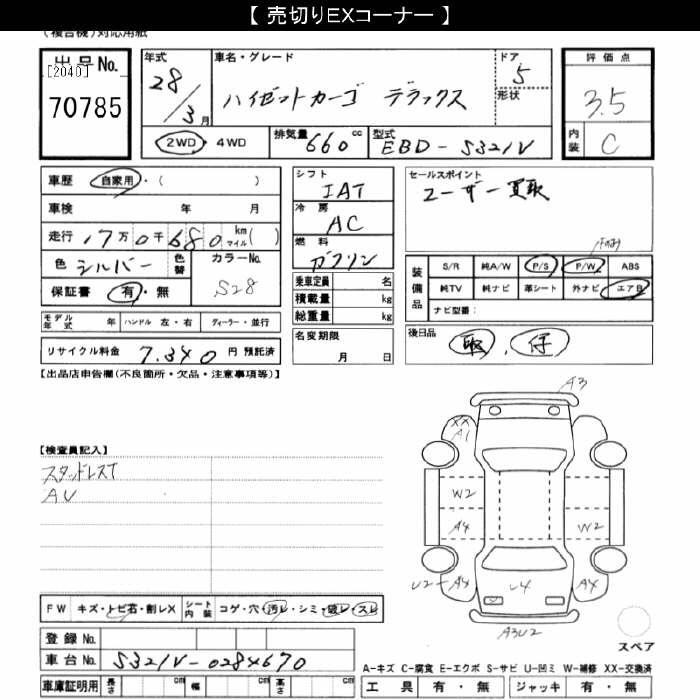 【 売切りEXコーナー 】
(複合機)対応用紙
出品No.
[2040]
70785
年式
28/3月
車名・グレード
ハイゼットカーゴ デラックス
ドア
5
形状
評価点
3.5
内装
C
2WD・4WD
排気量 660 cc
型式 EBD-S321V
車歴 自家用・( )
車検 年 月
走行 17万0千680 km マイル( )
色 シルバー 色替
カラーNo. S28
保証書 有・無
モデル年式 年 ハンドル 左・右 ディーラー・並行
リサイクル料金 7.340 円 預託済
シフト
IAT
冷房
AC
燃料
ガソリン
乗車定員 名
積載量 kg
総重量 kg
名変期限
月 日
セールスポイント
ユーザー買取
装備品
S/R 純A/W P/S P/W ABS
純TV 純ナビ 革シート 外ナビ エアB
ナビ型番:
後日品
取、仔
【出品店申告欄(不良箇所・欠品・注意事項等)】
【検査員記入】
スタッドレスT
AU
A3
XX
A1
W2
A4
W2
U2-A4
U4
A4
A3U2
スペア
FW キズ・トビ石・割レX シート内装 コゲ・穴・汚レ・シミ・破レ・スレ
登録No.
車台No. S321V-0284670
車庫証明用 長さ cm 幅 cm 高さ cm
A-キズ C-腐食 E-エクボ S-サビ U-凹ミ W-補修 XX-交換済
工具 有・無 ジャッキ 有・無